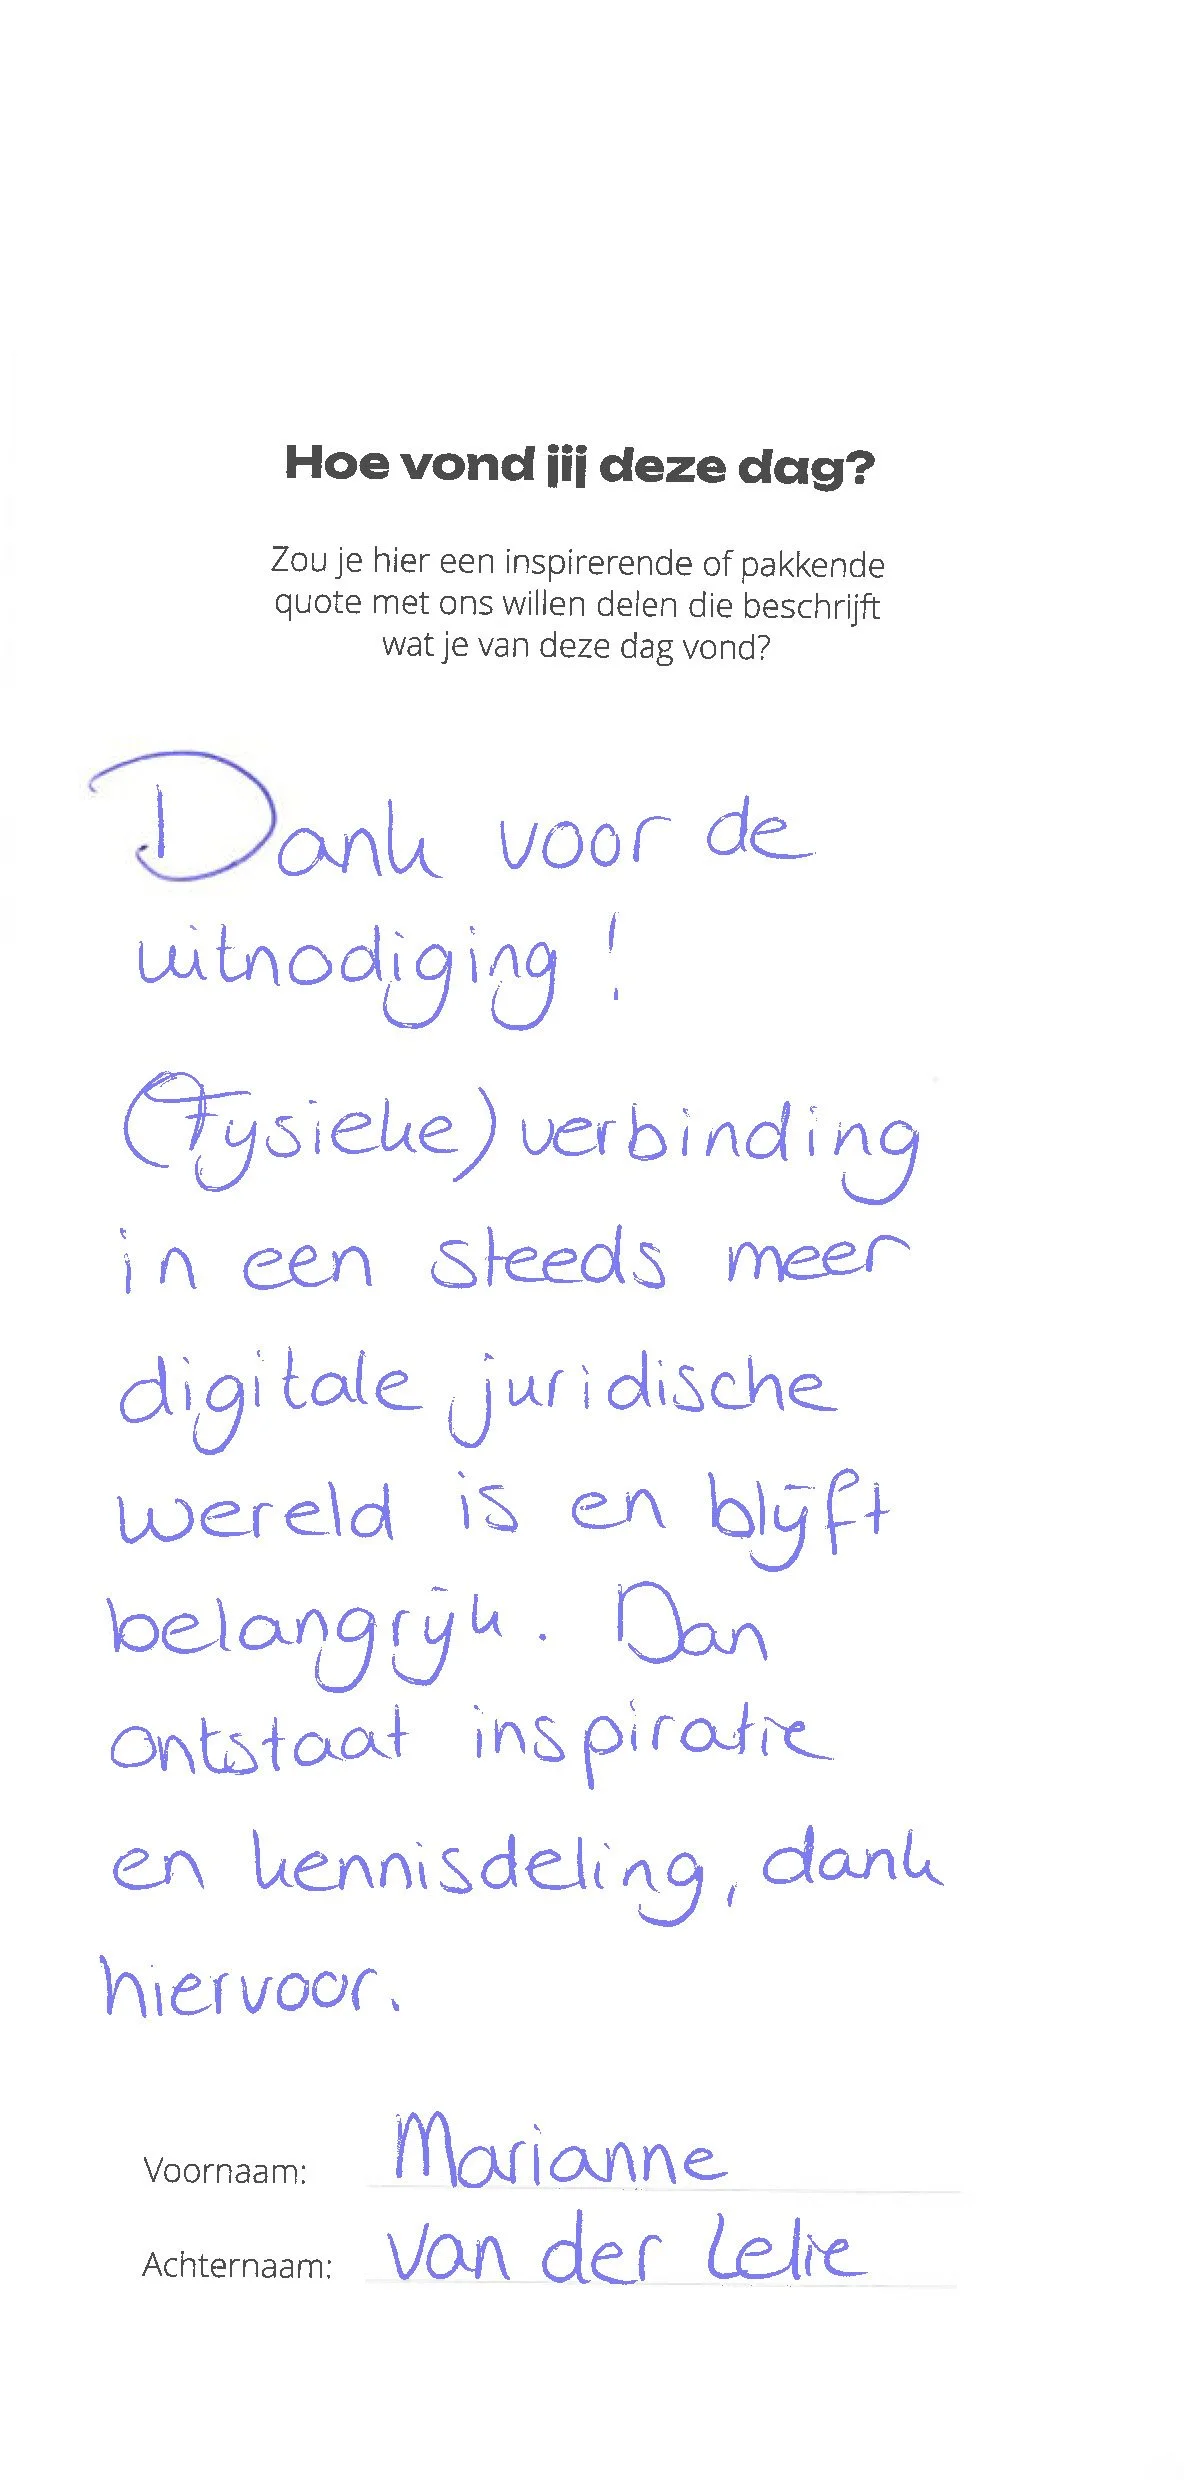 Hoe vond jij deze dag?
Zou je hier een inspirerende of pakkende
quote met ons willen delen die beschrijft
wat je van deze dag vond?
Dank voor de
uitnodiging!
(Fysieke) verbinding
in een steeds meer
digitale juridische
wereld is en blijft
belangrijk. Dan
ontstaat inspiratie
en kennisdeling, dank
hiervoor.
Voornaam: Marianne
Achternaam: van der Lelie